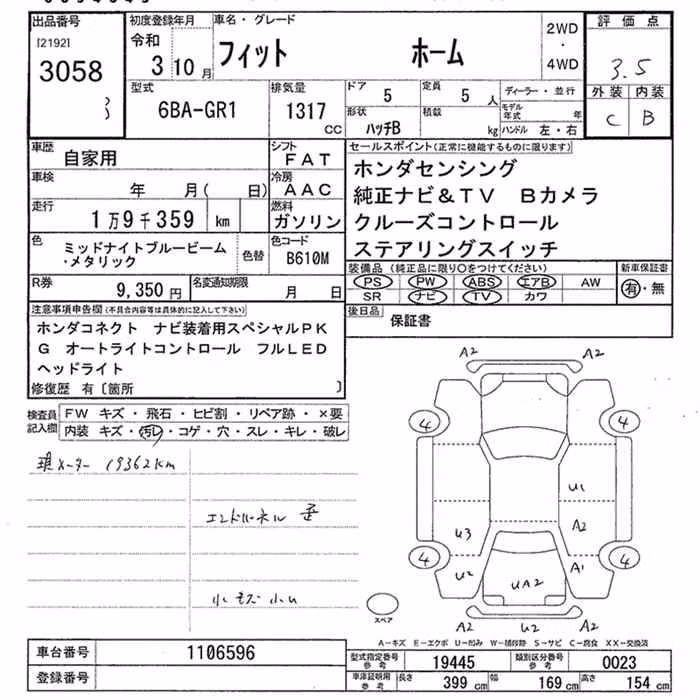 出品番号
[2192]
3058
3
初度登録年月
令和
3 年 10 月
車名・グレード
フィット ホーム
2WD
・
4WD
評価点
3.5
外装 内装
C B
型式
6BA-GR1
排気量
1317 CC
ドア
5
定員
5 人
形状
ハッチB
積載
kg
ディーラー・並行
モデル年式 年
ハンドル 左・右
車歴
自家用
シフト
FAT
車検
年 月( 日)
冷房
AAC
走行
1万9千359 km
燃料
ガソリン
色
ミッドナイトブルービーム
・メタリック
色替
色コード
B610M
R券
9,350 円
名変通知期限
月 日
セールスポイント(正常に機能するものに限ります)
ホンダセンシング
純正ナビ&TV Bカメラ
クルーズコントロール
ステアリングスイッチ
装備品(純正品に限り○をつけてください)
PS PW ABS エアB AW
SR ナビ TV カワ
新車保証書
有・無
後日品
保証書
注意事項申告欄(不具合内容等は具体的に記入して下さい)
ホンダコネクト ナビ装着用スペシャルPK
G オートライトコントロール フルLED
ヘッドライト
修復歴 有〔箇所 〕
検査員
記入欄
FW キズ・飛石・ヒビ割・リペア跡・×要
内装 キズ・汚レ・コゲ・穴・スレ・キレ・破レ
現メーター 19362km
小キズ小U
A2 A2
4 4
U1
U3 A2
U2 A1
4 4
UA2
A2 U2 A2
スペア
A-キズ E-エクボ U-凹み W-補修跡 S-サビ C-腐食 XX-交換済
車台番号
1106596
登録番号
型式指定番号
参考
19445
類別区分番号
参考
0023
車庫証明用
参考
長さ
399 cm
幅
169 cm
高さ
154 cm